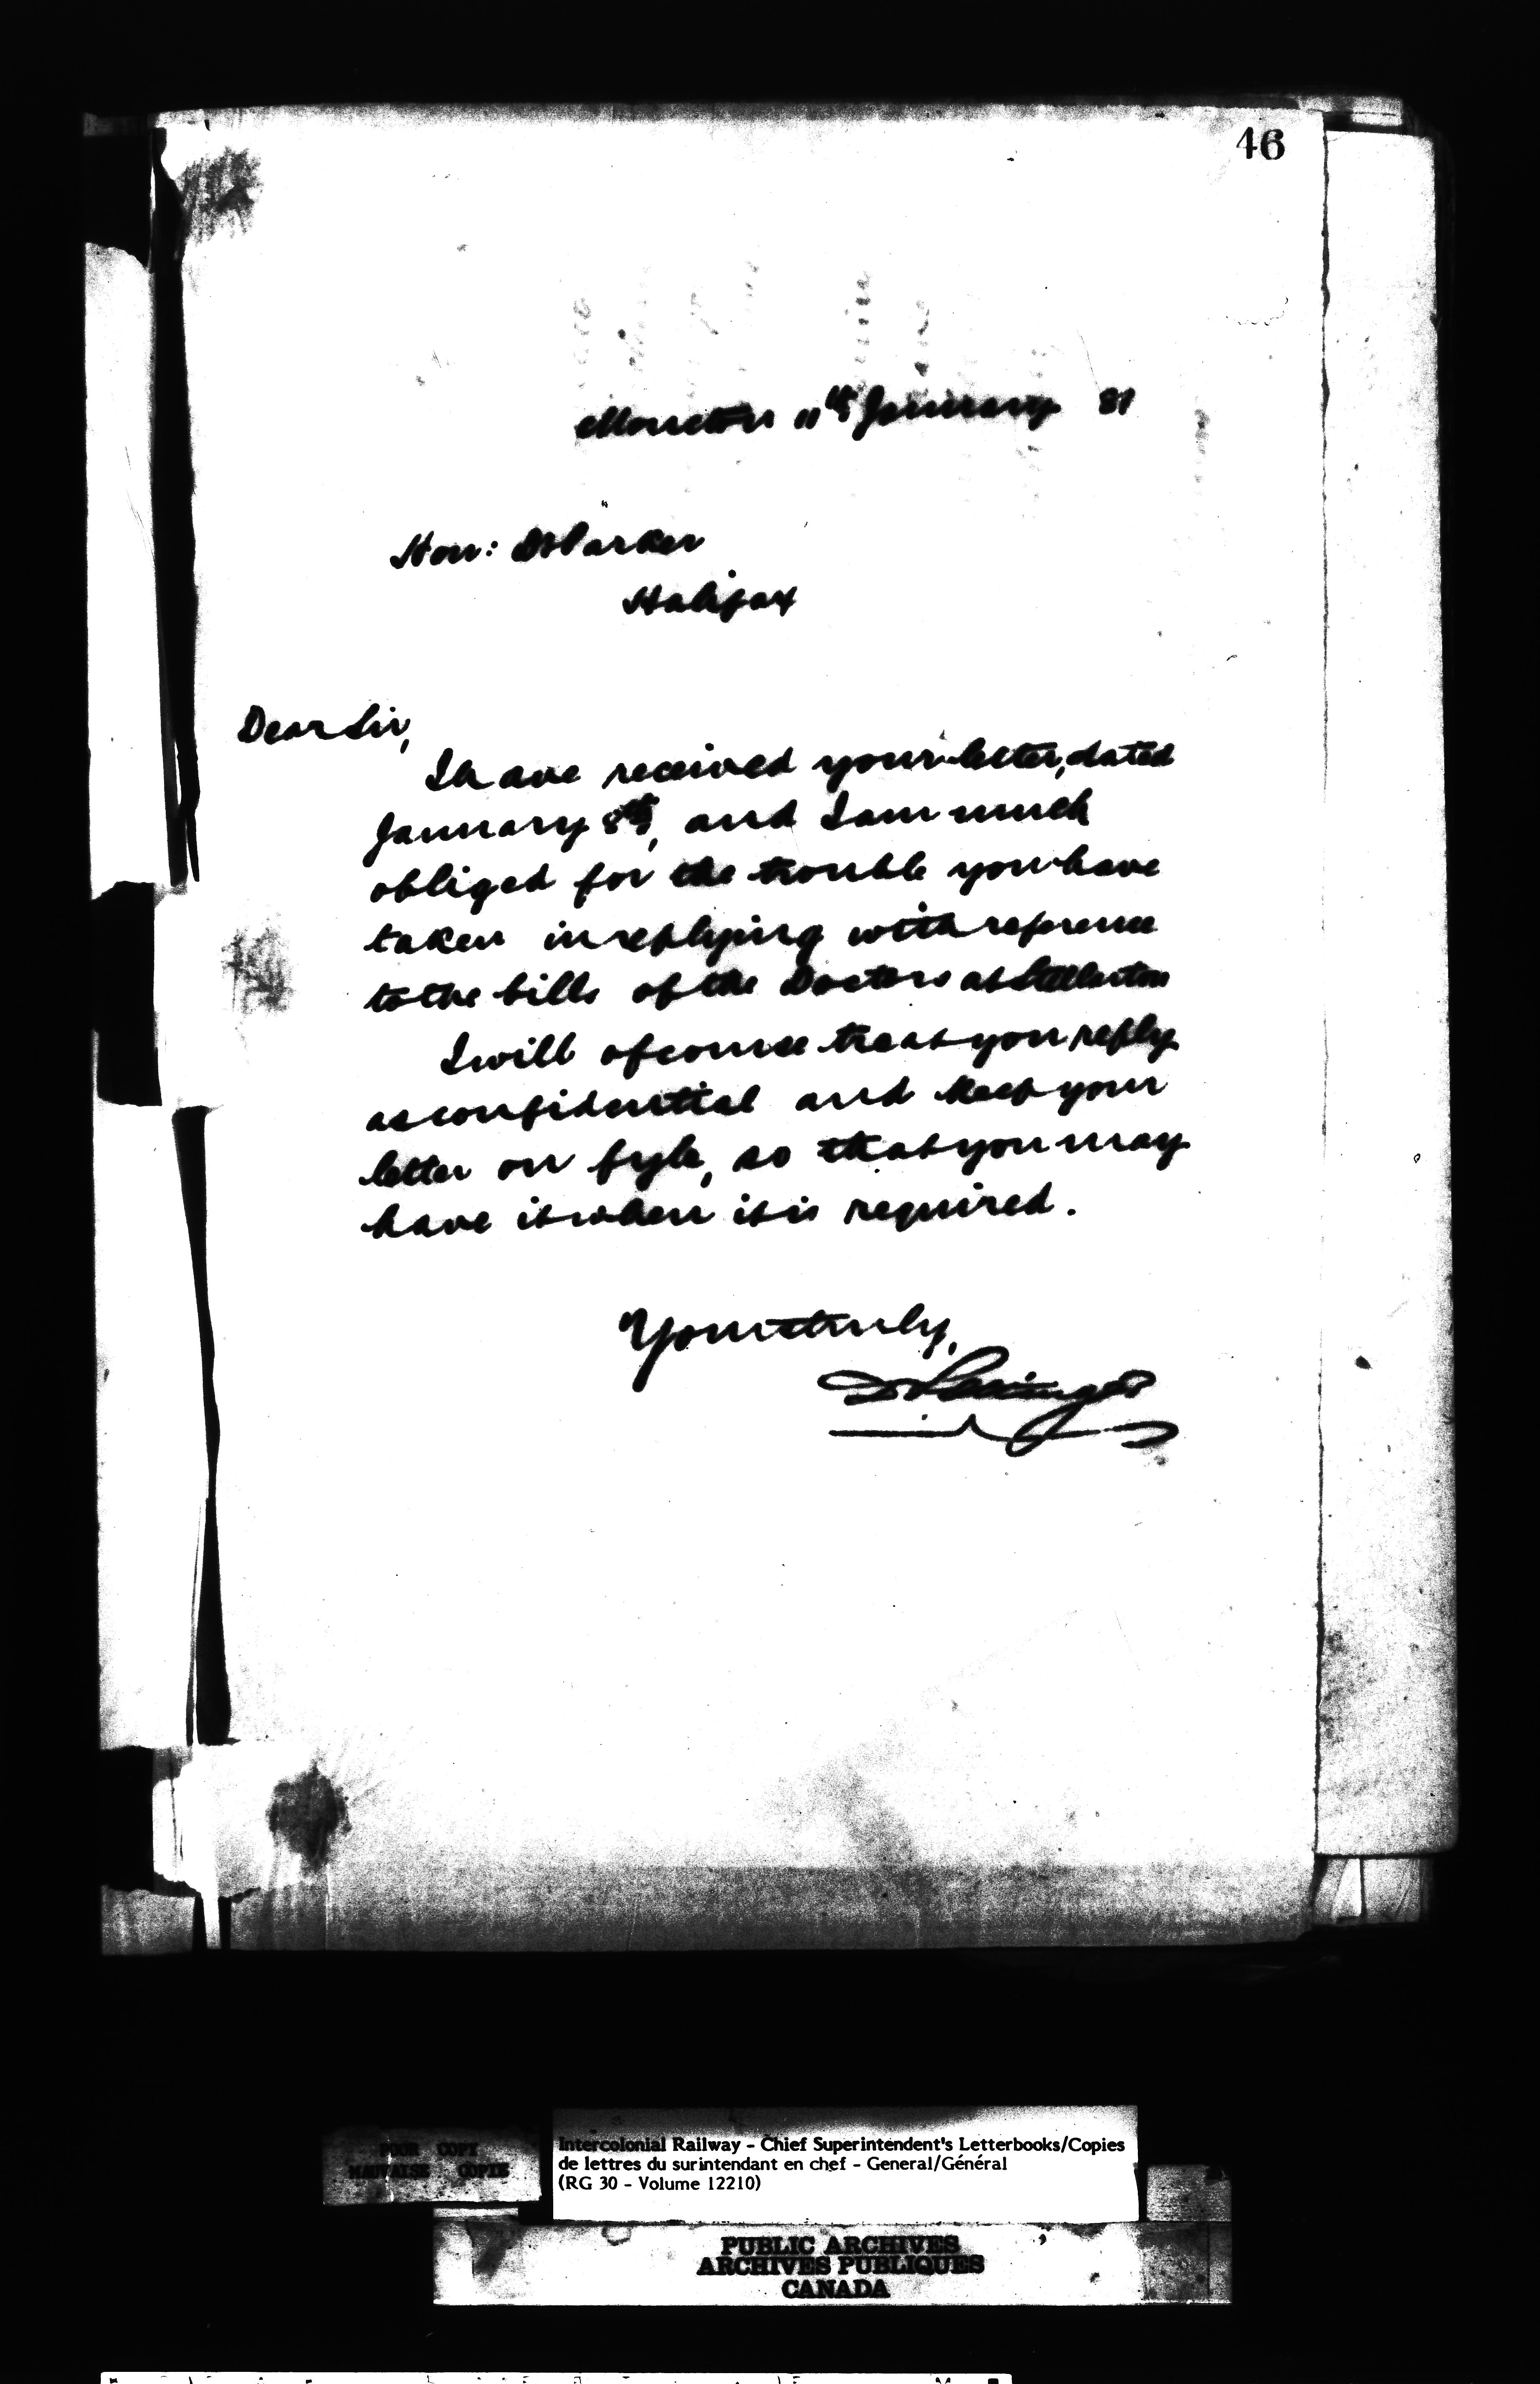 46
Moncton 11th January 81
Hon: Dr Parker
Halifax
Dear Sir,
I have received your letter, dated
January 8th, and I am much
obliged for the trouble you have
taken in replying with reference
to the bills of the Doctors at Stellarton
I will of course treat you reply
as confidential and keep your
letter on fyle, so that you may
have it when it is required.
Yours truly,
D Pottinger
POOR COPY
MAUVAISE COPIE
Intercolonial Railway - Chief Superintendent's Letterbooks/Copies
de lettres du surintendant en chef - General/Général
(RG 30 - Volume 12210)
PUBLIC ARCHIVES
ARCHIVES PUBLIQUES
CANADA